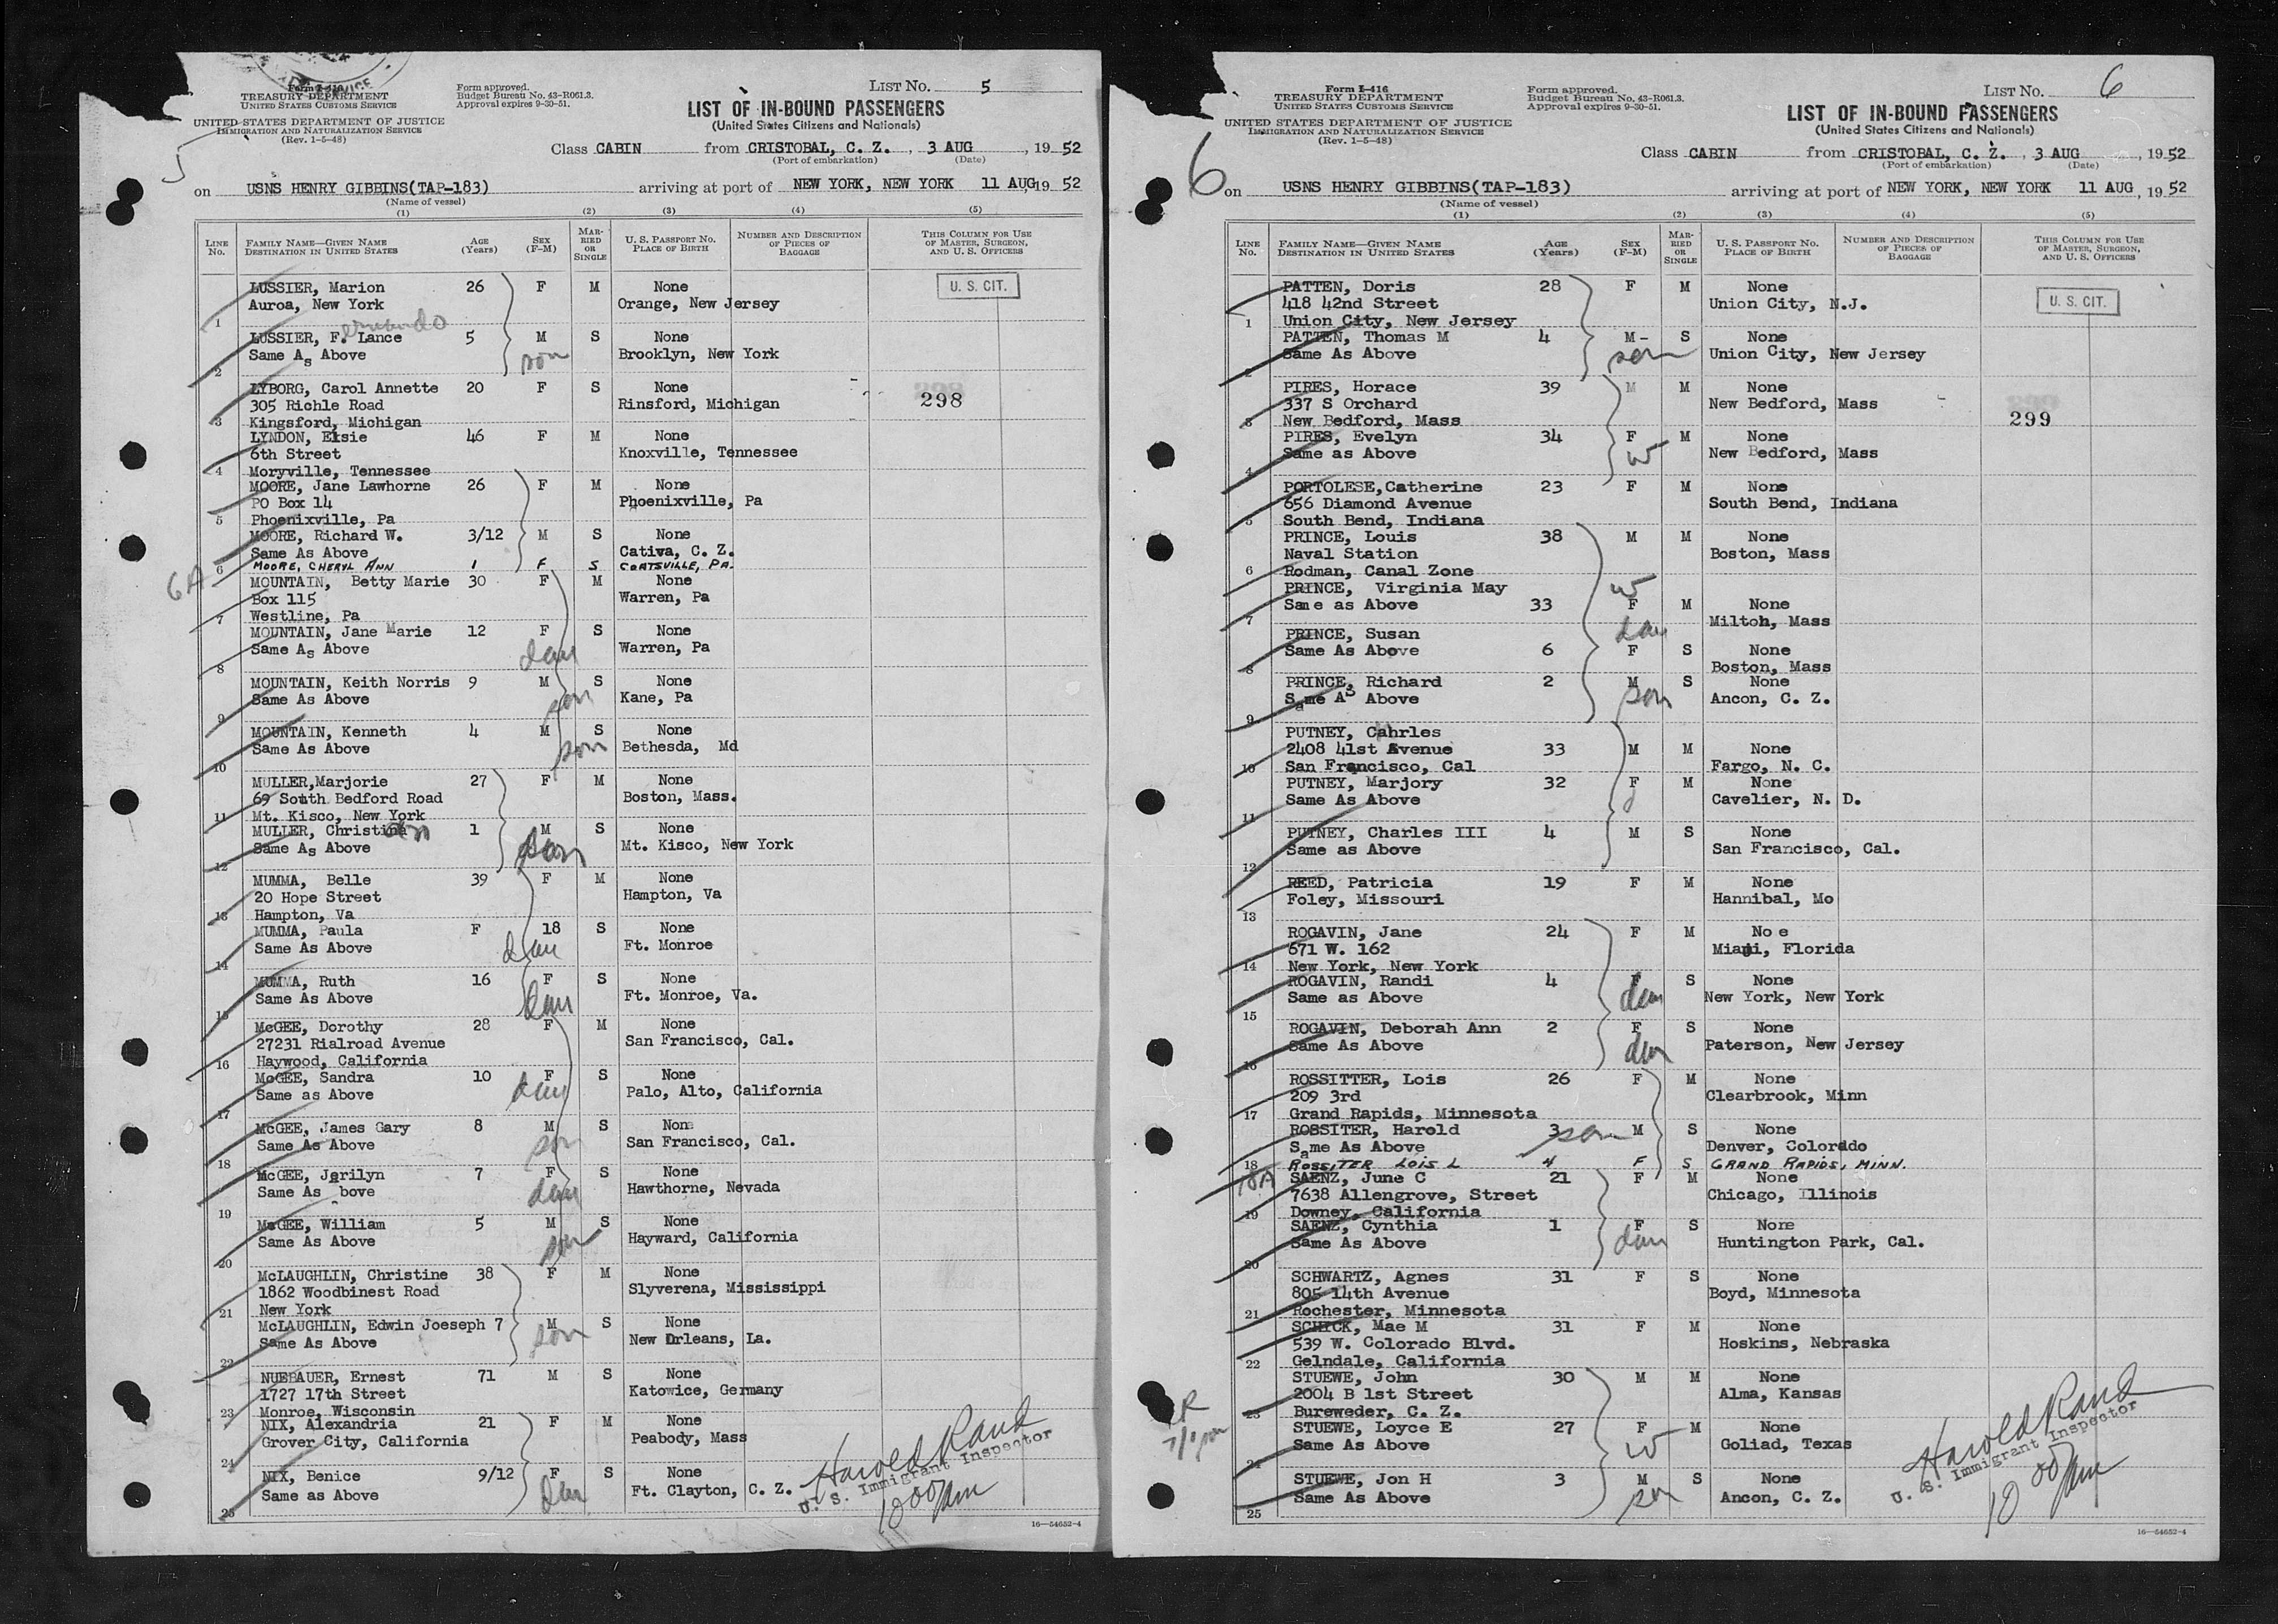 Form approved.
Budget Bureau No. 43-R061.3.
Approval expires 9-30-51.
LIST NO. 5
TREASURY DEPARTMENT
UNITED STATES CUSTOMS SERVICE
UNITED STATES DEPARTMENT OF JUSTICE
IMMIGRATION AND NATURALIZATION SERVICE
(Rev. 1-5-48)
LIST OF IN-BOUND PASSENGERS
(United States Citizens and Nationals)
5
Class CABIN from CRISTOBAL, C. Z. , 3 AUG , 19 52
(Port of embarkation) (Date)
on USNS HENRY GIBBINS(TAP-183) arriving at port of NEW YORK, NEW YORK 11 AUG 19 52
(Name of vessel)
(1) (2) (3) (4) (5)
LINE No. FAMILY NAME—GIVEN NAME DESTINATION IN UNITED STATES AGE (Years) SEX (F-M) MARRIED OR SINGLE U. S. PASSPORT NO. PLACE OF BIRTH NUMBER AND DESCRIPTION OF PIECES OF BAGGAGE THIS COLUMN FOR USE OF MASTER, SURGEON, AND U. S. OFFICERS
LUSSIER, Marion 26 F M None U. S. CIT.
Auroa, New York Orange, New Jersey
1
LUSSIER, F. Lance 5 M S None
2 Same As Above son Brooklyn, New York
LYBORG, Carol Annette 20 F S None
305 Richle Road Rinsford, Michigan 298
3 Kingsford, Michigan
LYNDON, Elsie 46 F M None
6th Street Knoxville, Tennessee
4 Moryville, Tennessee
MOORE, Jane Lawhorne 26 F M None
PO Box 14 Phoenixville, Pa
5 Phoenixville, Pa
MOORE, Richard W. 3/12 M S None
Same As Above Cativa, C. Z.
6
6A MOORE, CHERYL ANN 1 F S COATSVILLE, PA.
MOUNTAIN, Betty Marie 30 F M None
Box 115 Warren, Pa
7 Westline, Pa
MOUNTAIN, Jane Marie 12 F S None
8 Same As Above dau Warren, Pa
MOUNTAIN, Keith Norris 9 M S None
9 Same As Above son Kane, Pa
MOUNTAIN, Kenneth 4 M S None
10 Same As Above son Bethesda, Md
MULLER,Marjorie 27 F M None
69 South Bedford Road Boston, Mass.
11 Mt. Kisco, New York
MULLER, Christian 1 M S None
12 Same As Above son Mt. Kisco, New York
MUMMA, Belle 39 F M None
20 Hope Street Hampton, Va
13 Hampton, Va
MUMMA, Paula F 18 S None
14 Same As Above dau Ft. Monroe
MUMMA, Ruth 16 F S None
15 Same As Above dau Ft. Monroe, Va.
McGEE, Dorothy 28 F M None
27231 Rialroad Avenue San Francisco, Cal.
16 Haywood, California
McGEE, Sandra 10 F S None
17 Same as Above dau Palo, Alto, California
McGEE, James Gary 8 M S None
18 Same As Above son San Francisco, Cal.
McGEE, Jerilyn 7 F S None
19 Same As bove dau Hawthorne, Nevada
McGEE, William 5 M S None
20 Same As Above son Hayward, California
McLAUGHLIN, Christine 38 F M None
1862 Woodbinest Road Slyverena, Mississippi
21 New York
McLAUGHLIN, Edwin Joeseph 7 M S None
22 Same As Above son New Orleans, La.
NUEBAUER, Ernest 71 M S None
1727 17th Street Katowice, Germany
23 Monroe, Wisconsin
NIX, Alexandria 21 F M None
24 Grover City, California Peabody, Mass
NIX, Benice 9/12 F S None
25 Same as Above dau Ft. Clayton, C. Z.
Harold Rand
U. S. Immigrant Inspector
16—54652-4
Form I-416
TREASURY DEPARTMENT
UNITED STATES CUSTOMS SERVICE
UNITED STATES DEPARTMENT OF JUSTICE
IMMIGRATION AND NATURALIZATION SERVICE
(Rev. 1-5-48)
Form approved.
Budget Bureau No. 43-R061.3.
Approval expires 9-30-51.
LIST NO. 6
LIST OF IN-BOUND PASSENGERS
(United States Citizens and Nationals)
6
Class CABIN from CRISTOBAL, C. Z. , 3 AUG , 19 52
(Port of embarkation) (Date)
on USNS HENRY GIBBINS(TAP-183) arriving at port of NEW YORK, NEW YORK 11 AUG , 19 52
(Name of vessel)
(1) (2) (3) (4) (5)
LINE No. FAMILY NAME—GIVEN NAME DESTINATION IN UNITED STATES AGE (Years) SEX (F-M) MARRIED OR SINGLE U. S. PASSPORT NO. PLACE OF BIRTH NUMBER AND DESCRIPTION OF PIECES OF BAGGAGE THIS COLUMN FOR USE OF MASTER, SURGEON, AND U. S. OFFICERS
PATTEN, Doris 28 F M None U. S. CIT.
418 42nd Street Union City, N.J.
1 Union City, New Jersey
PATTEN, Thomas M 4 M- S None
2 Same As Above son Union City, New Jersey
PIRES, Horace 39 M M None
337 S Orchard New Bedford, Mass 299
3 New Bedford, Mass
PIRES, Evelyn 34 F M None
4 Same as Above W New Bedford, Mass
PORTOLESE,Catherine 23 F M None
656 Diamond Avenue South Bend, Indiana
5 South Bend, Indiana
PRINCE, Louis 38 M M None
Naval Station Boston, Mass
6 Rodman, Canal Zone
PRINCE, Virginia May w
Same as Above 33 F M None
7 Milton, Mass
PRINCE, Susan dau
8 Same As Above 6 F S None
Boston, Mass
PRINCE, Richard 2 M S None
9 Same As Above son Ancon, C. Z.
PUTNEY, Cahrles
2408 41st Avenue 33 M M None
10 San Francisco, Cal Fargo, N. C.
PUTNEY, Marjory 32 F M None
11 Same As Above Cavelier, N. D.
PUTNEY, Charles III 4 M S None
12 Same as Above San Francisco, Cal.
REED, Patricia 19 F M None
13 Foley, Missouri Hannibal, Mo
ROGAVIN, Jane 24 F M No e
671 W. 162 Miami, Florida
14 New York, New York
ROGAVIN, Randi 4 F S None
15 Same as Above dau New York, New York
ROGAVIN, Deborah Ann 2 F S None
16 Same As Above dau Paterson, New Jersey
ROSSITTER, Lois 26 F M None
209 3rd Clearbrook, Minn
17 Grand Rapids, Minnesota
ROSSITER, Harold 3 son M S None
18 Same As Above Denver, Colorado
18A ROSSITER LOIS L 4 F S GRAND RAPIDS, MINN.
SAENZ, June C 21 F M None
7638 Allengrove, Street Chicago, Illinois
19 Downey, California
SAENZ, Cynthia 1 F S None
20 Same As Above dau Huntington Park, Cal.
SCHWARTZ, Agnes 31 F S None
805 14th Avenue Boyd, Minnesota
21 Rochester, Minnesota
SCHICK, Mae M 31 F M None
539 W. Colorado Blvd. Hoskins, Nebraska
22 Gelndale, California
STUEWE, John 30 M M None
2004 B 1st Street Alma, Kansas
23 Bureweder, C. Z.
STUEWE, Loyce E 27 F M None
24 Same As Above W Goliad, Texas
STUEWE, Jon H 3 M S None
25 Same As Above son Ancon, C. Z.
Harold Rand
U. S. Immigrant Inspector
16—54652-4